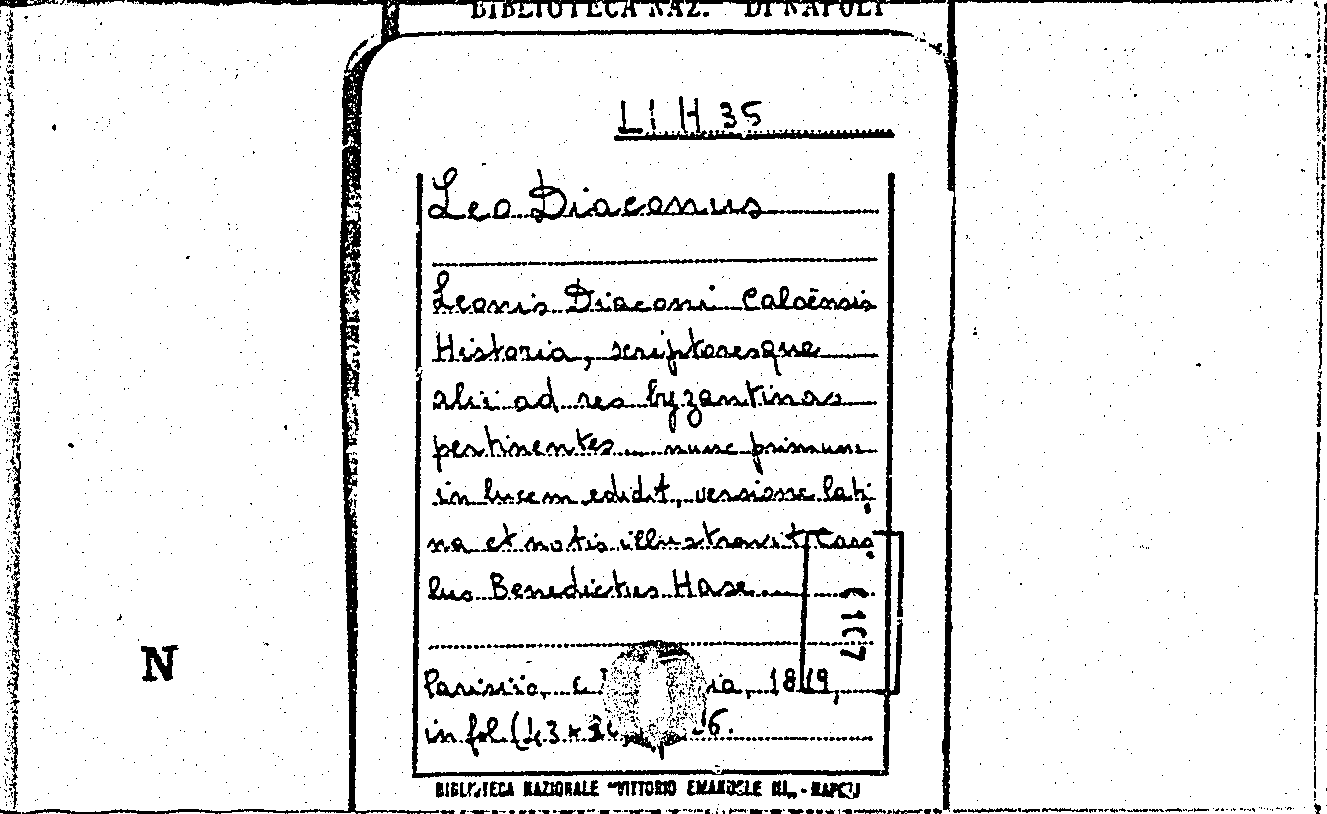 BIBLIOTECA NAZ. DI NAPOLI
L I H 35
Leo Diaconus
Leonis Diaconi Caloënsis
Historia, scriptoresque
alii ad res byzantinas
pertinentes ... nunc primum
in lucem edidit, versione lati-
na et notis illustravit Caro-
lus Benedictus Hase ...
Parisiis, 1819,
in fol. (43 × 6.
C 107
N
BIBLIOTECA NAZIONALE "VITTORIO EMANUELE III„ - NAPOLI